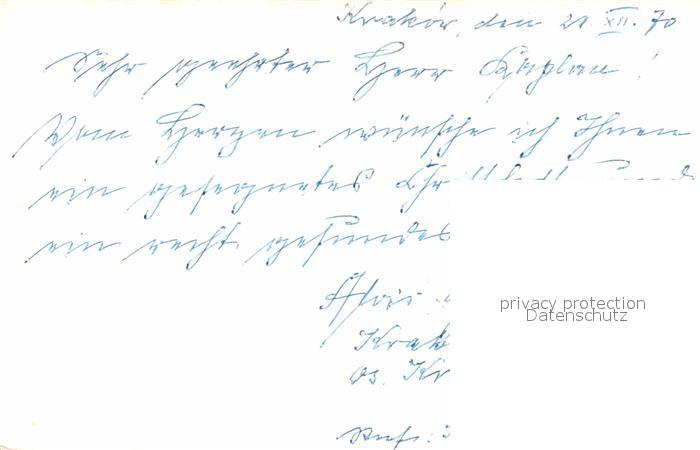 Kraków, den 21. XII. 70
Sehr geehrter Herr Kaplan!
Vom Herzen wünsche ich Ihnen
ein gesegnetes
ein recht gesundes
Alois
os. Kr
privacy protection
Datenschutz